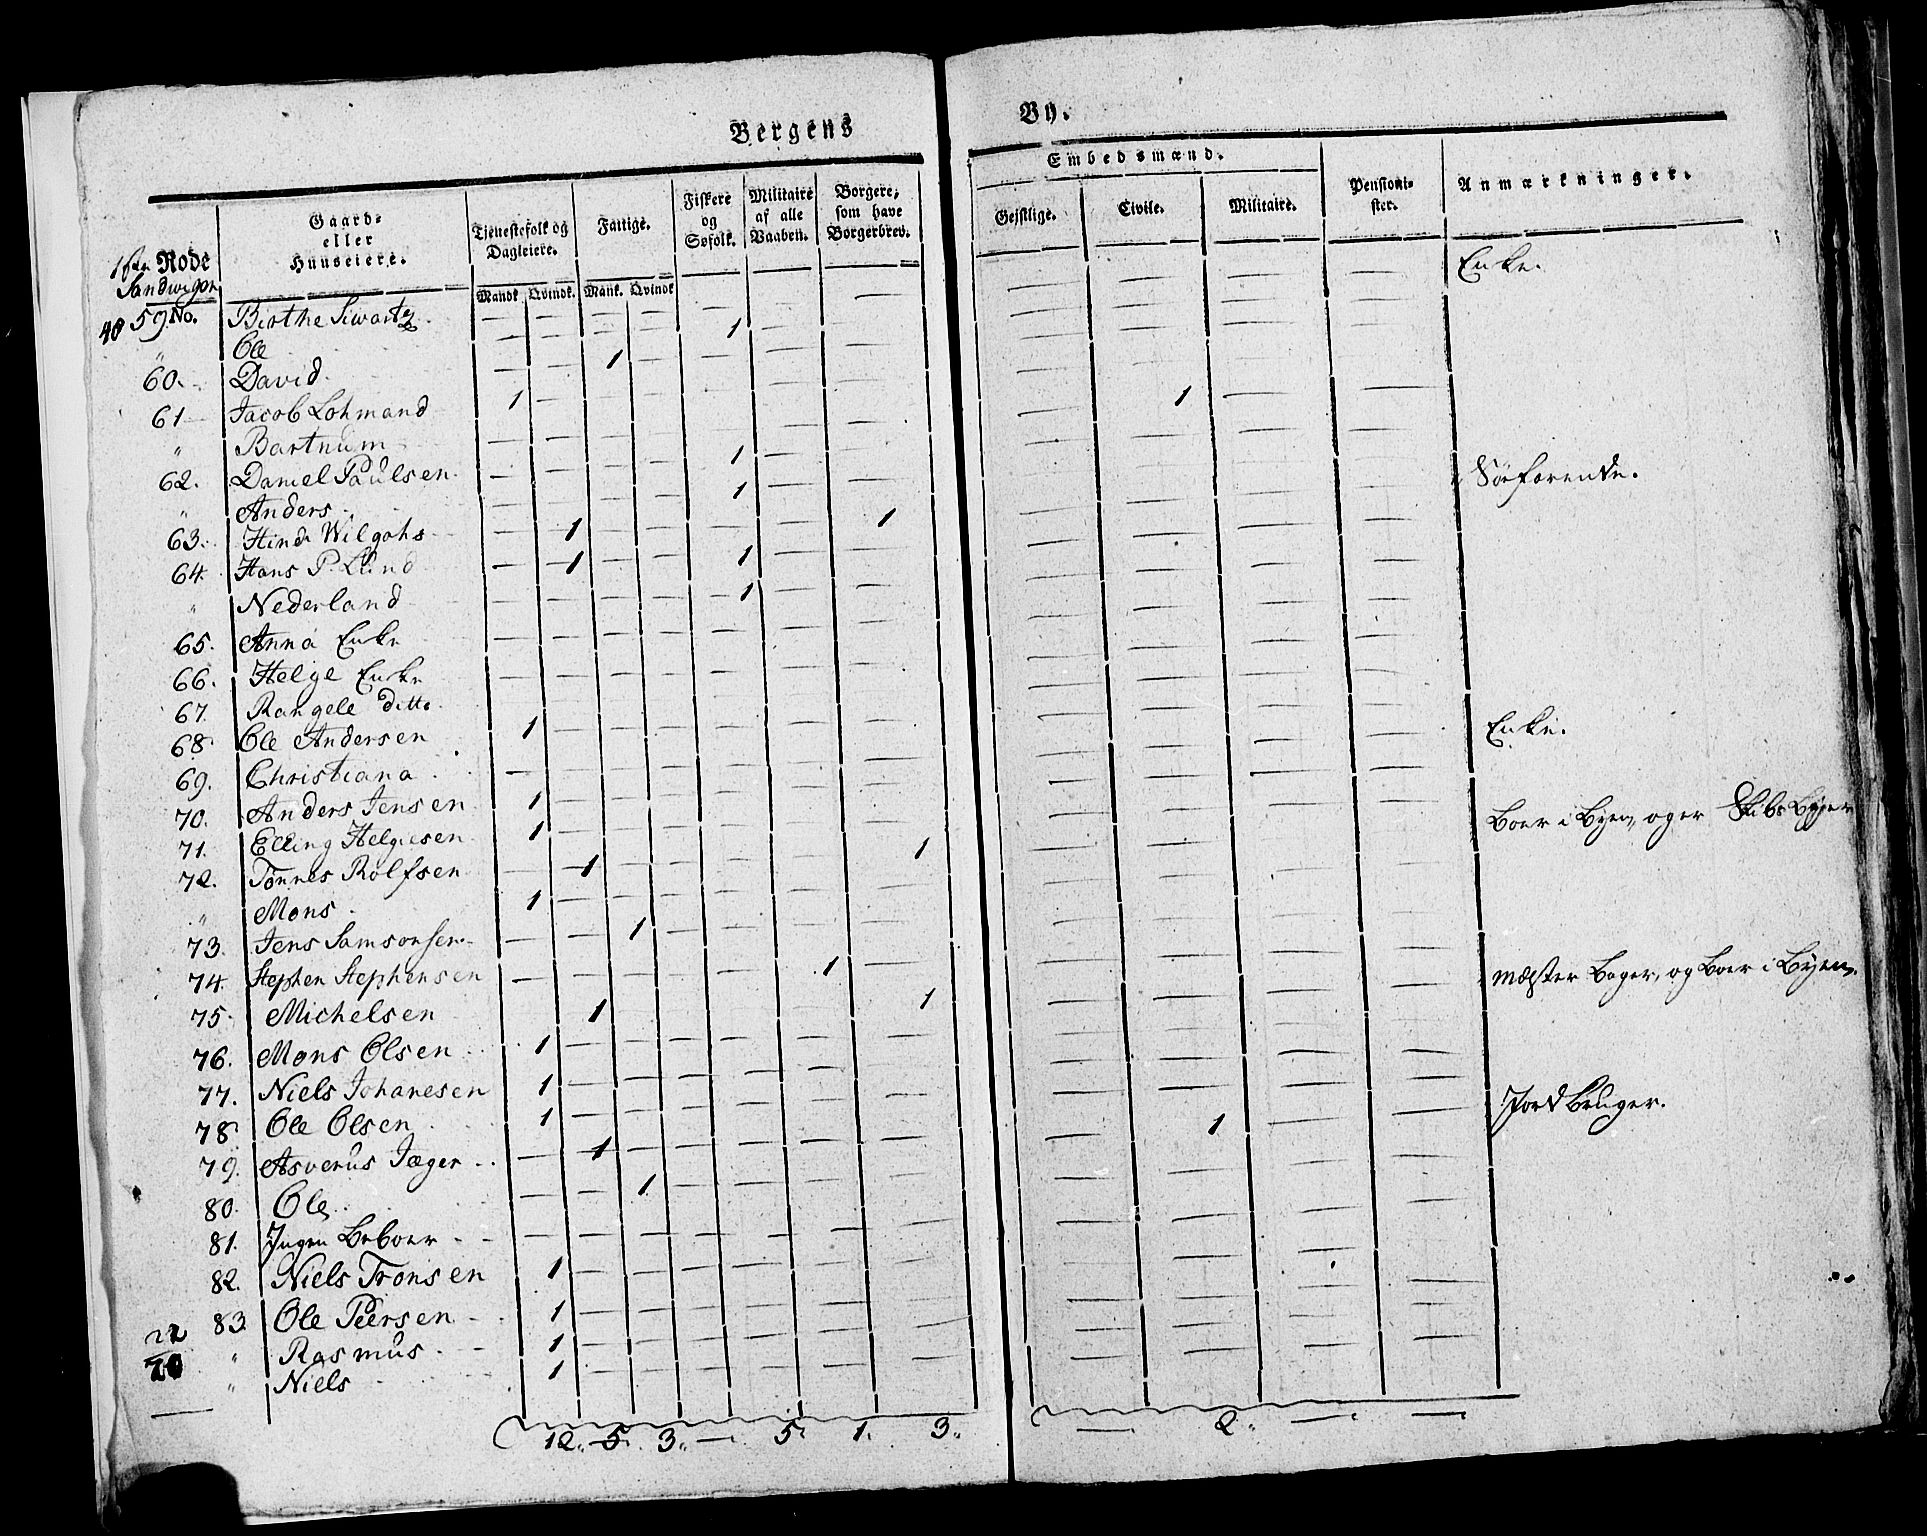 Bergens By.
Embedsmænd.
Gaard-
eller
Huuseiere.
Tjenestefolk og
Dagleiere.
Fattige.
Fiskere
og
Søfolk.
Militaire
af alle
Vaaben.
Borgere,
som have
Borgerbrev.
Gejstlige.
Civile.
Militaire.
Pensioni-
ster.
Anmærkninger.
1ste Rode
Sandwigen
Mandk Qvindk. Mank. Qvindk
48 59. No. Birthe Swartz. — — — — — — — — — — — Enke.
" Ole — — — — 1 — — — — — —
60. David. — — 1 — — — — — — — —
61 Jacob Lohmand 1 — — — — — — — — — —
" Bartnum — — — — — — — — 1 — —
62. Daniel Paulsen. — — — — 1 — — — — — —
" Anders — — — — 1 — — — — — — Söefarende.
63. Hind. Wilgohs — 1 — — — — 1 — — — —
64. Hans P. Lund — 1 — — 1 — — — — — —
" Nederland — — — — 1 — — — — — —
65. Anna Enke — — — — — — — — — — —
66. Helge Enke — — — — — — — — — — —
67. Rangele ditto. — — — — — — — — — — —
68. Ole Andersen 1 — — — — — — — — — —
69. Christiana — — — — — — — — — — — Enke.
70. Anders Jensen 1 — — — — — — — — — —
71. Elling Helgiesen 1 — — — — — — — — — —
72. Tönnes Rolfsen — 1 — — — — 1 — — — — Boer i Byen, og er Skibs Bÿger
" Mons. 1 — — — — — — — — — —
73. Jens Samsonsen. — — 1 — — — — — — — —
74. Stephen Stephensen — — — — — 1 — — — — —
75. Michelsen — 1 — — — — 1 — — — — mæster Bager, og Boer i Byen.
76. Mons Olsen 1 — — — — — — — — — —
77. Niels Johanesen 1 — — — — — — — — — —
78. Ole Olsen 1 — — — — — — — — — —
79. Asverus Jæger — 1 — — — — — — 1 — — Jord Bruger.
80. Ole — — 1 — — — — — — — —
81. Ingen Beboer — — — — — — — — — — —
82. Niels Tronsen 1 — — — — — — — — — —
83. Ole Peersen 1 — — — — — — — — — —
" Rasmus 1 — — — — — — — — — —
" Niels 1 — — — — — — — — — —
22
70
12. 5. 3. — 5. 1. 3. — 2. — —